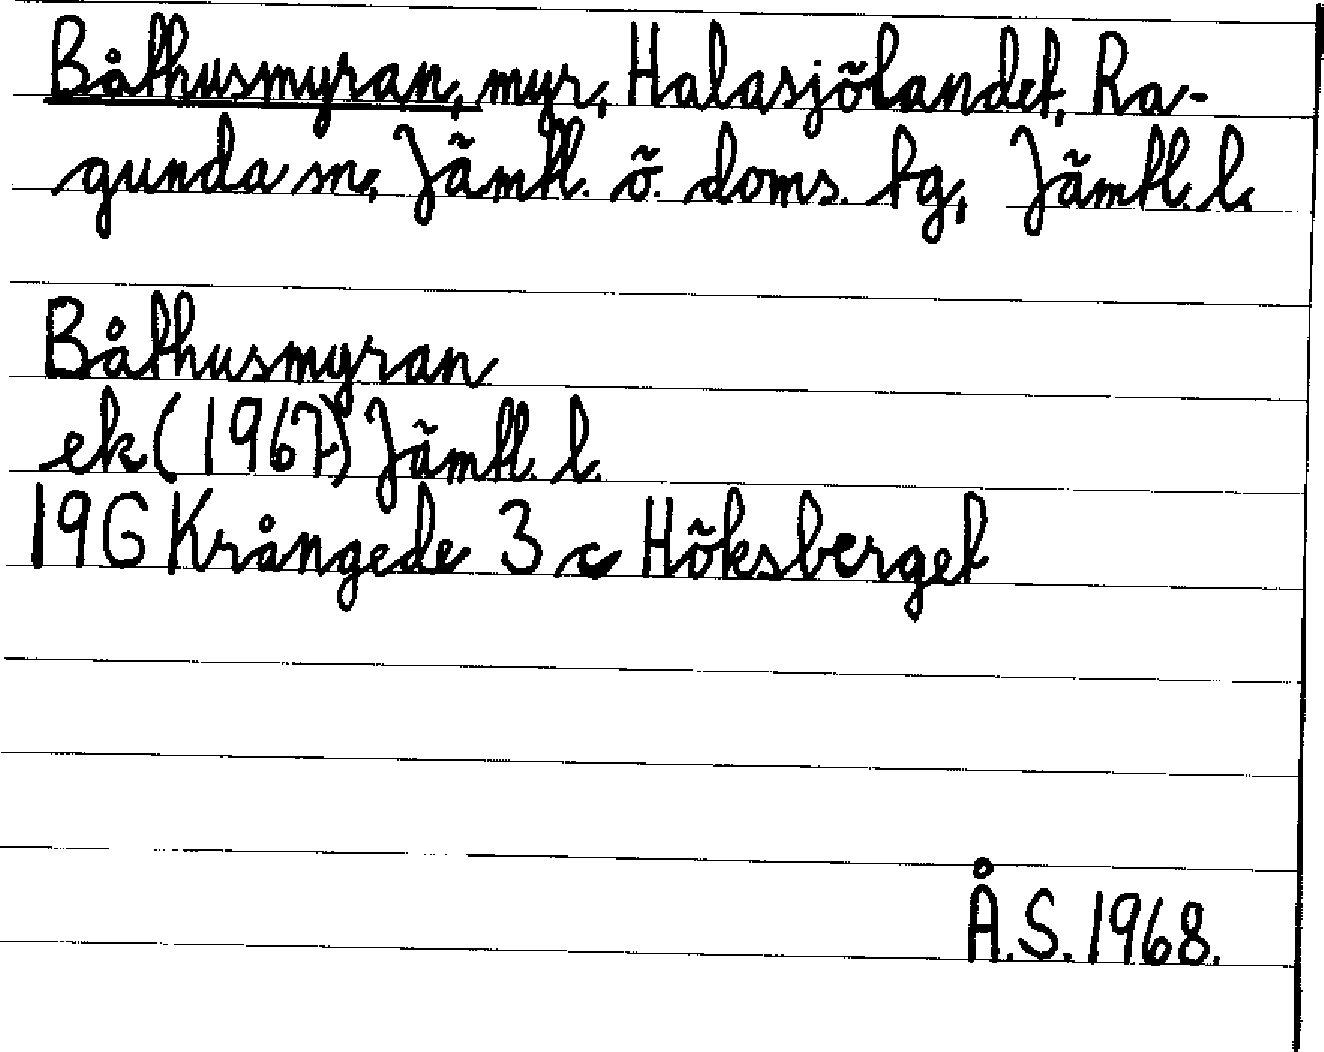 Båthusmyran, myr, Halasjölandet, Ra-
gunda sn, Jämtl. ö. doms. tg, Jämtl. l.
Båthusmyran
ek (1967) Jämtl. l.
19G Krångede 3 c Höksberget
Å.S. 1968.